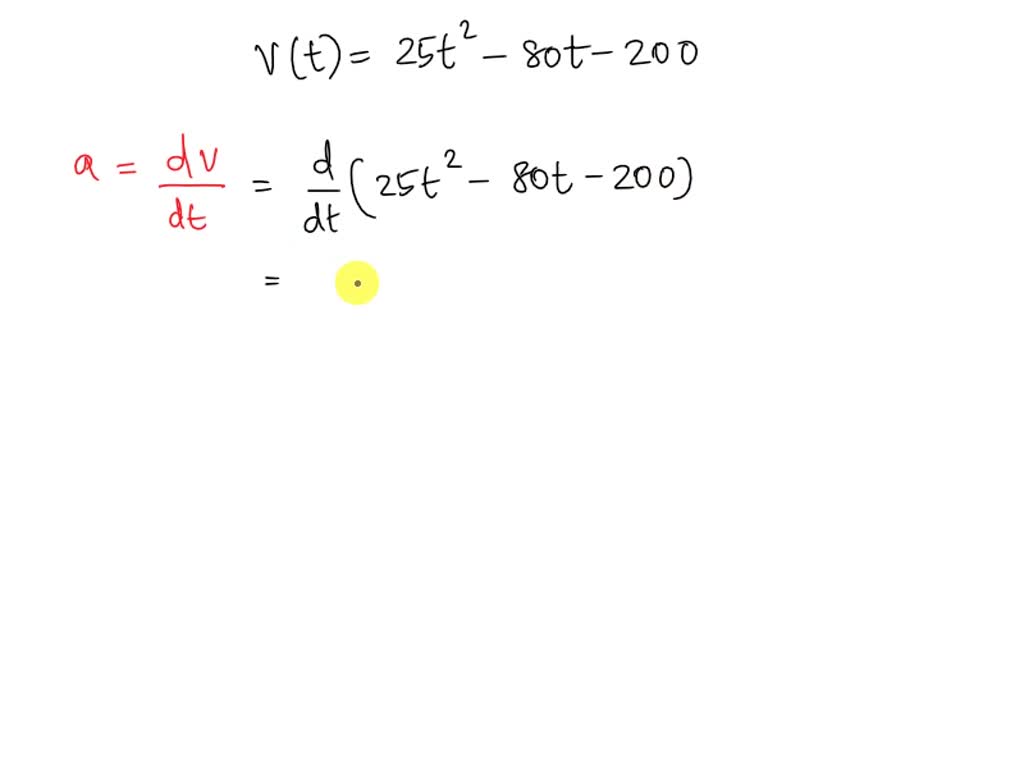 v(t) = 25t² - 80t - 200
a = dv/dt = d/dt (25t² - 80t - 200)
=